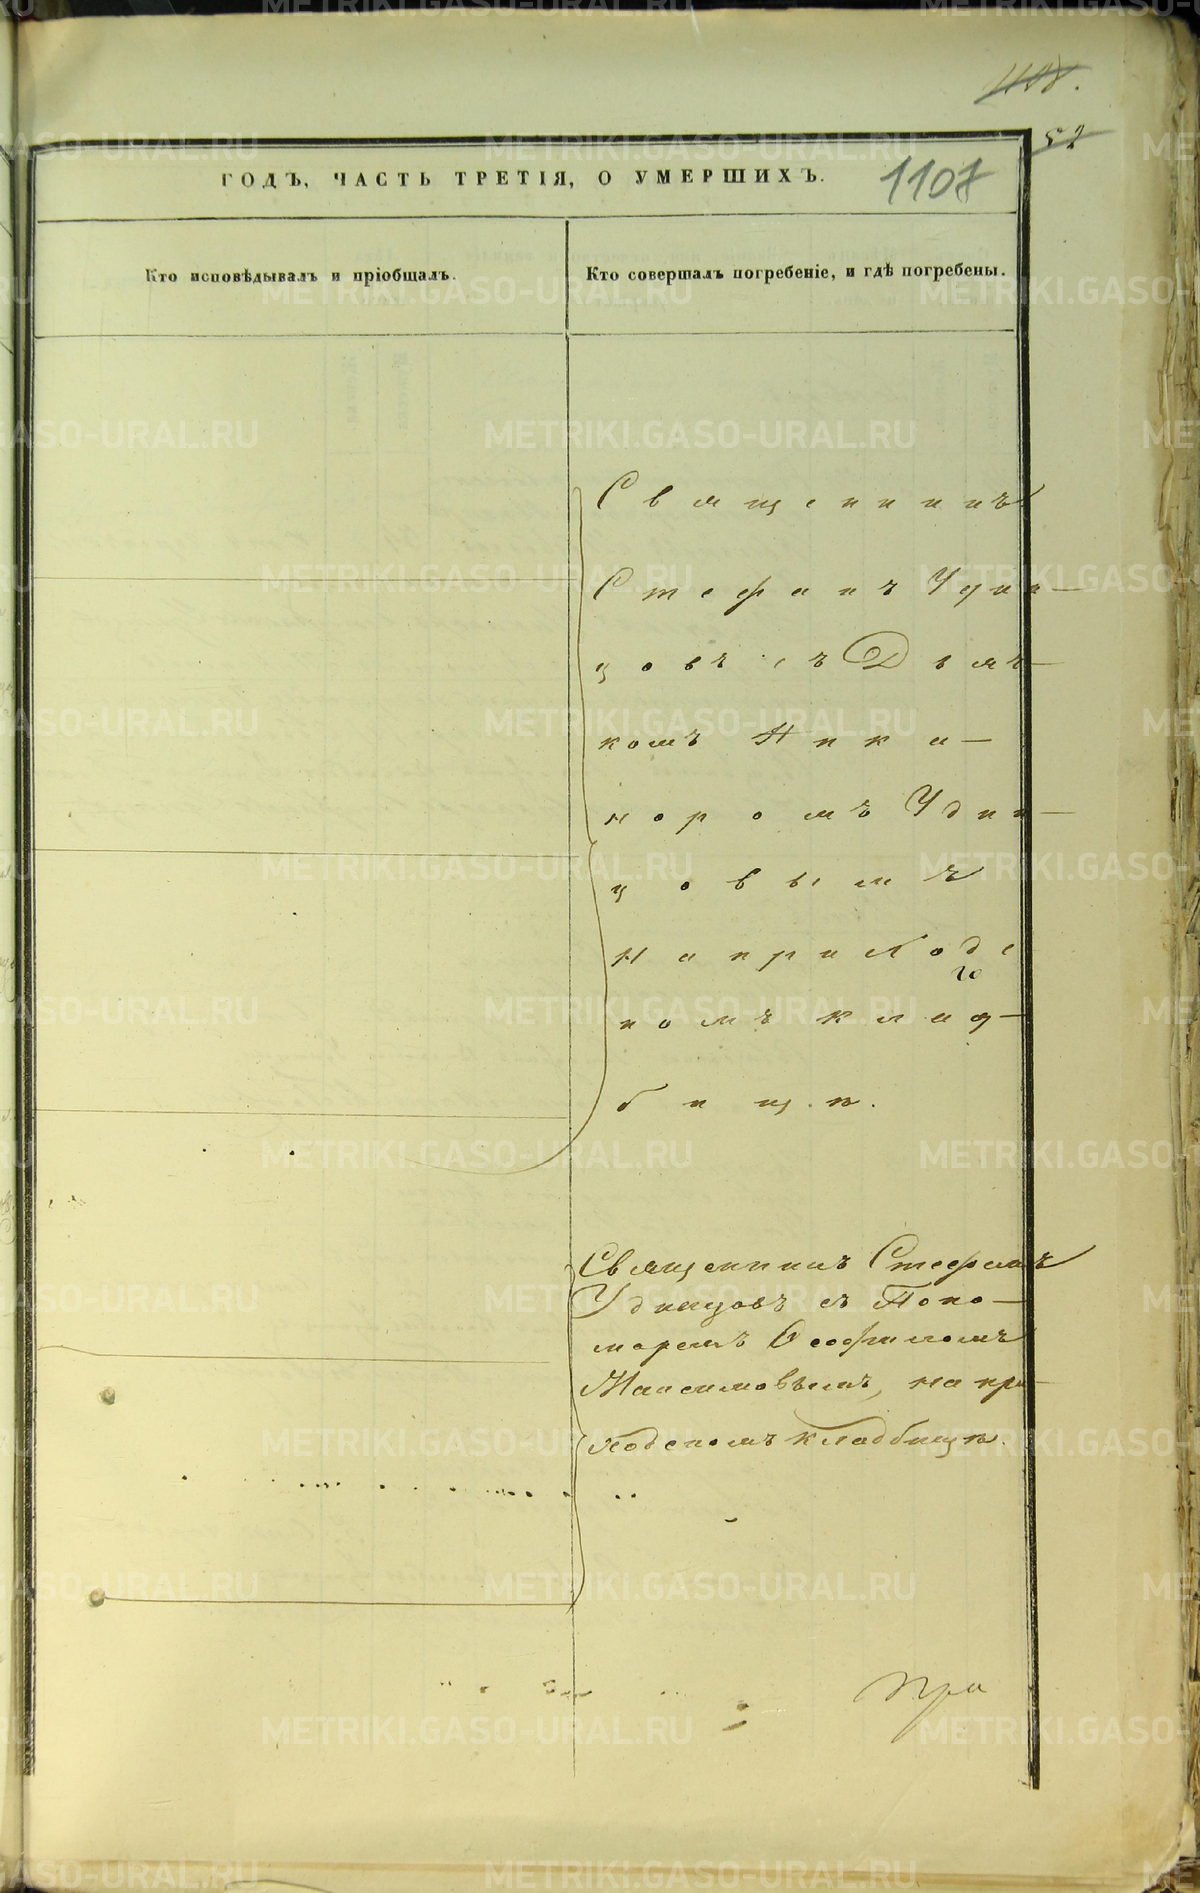 1108.
52
ГОДЪ, ЧАСТЬ ТРЕТІЯ, О УМЕРШИХЪ.
1107
Кто исповѣдывалъ и пріобщалъ.
Кто совершалъ погребеніе, и гдѣ погребены.
Священникъ
Стефанъ Удин-
цовъ съ Дьяч-
комъ Ника-
норомъ Удин-
цовымъ
на приходс
комъ клад-
бищѣ.
Священникъ Стефанъ
Удинцовъ съ Поно-
маремъ Ѳеофиломъ
Максимовымъ, на при-
ходскомъ кладбищѣ.
При
METRIKI.GASO-URAL.RU